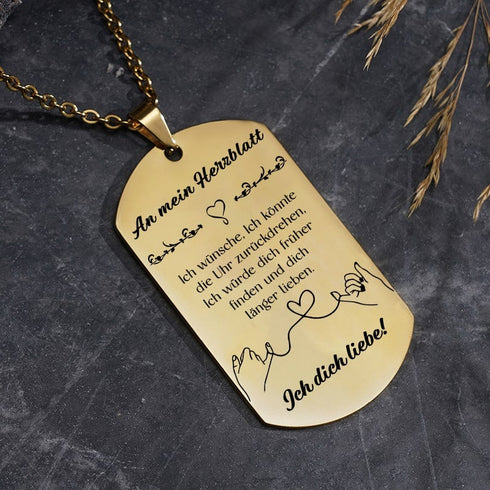 An mein Herzblatt
Ich wünsche, Ich könnte
die Uhr zurückdrehen.
Ich würde dich früher
finden und dich
länger lieben.
Ich dich liebe!